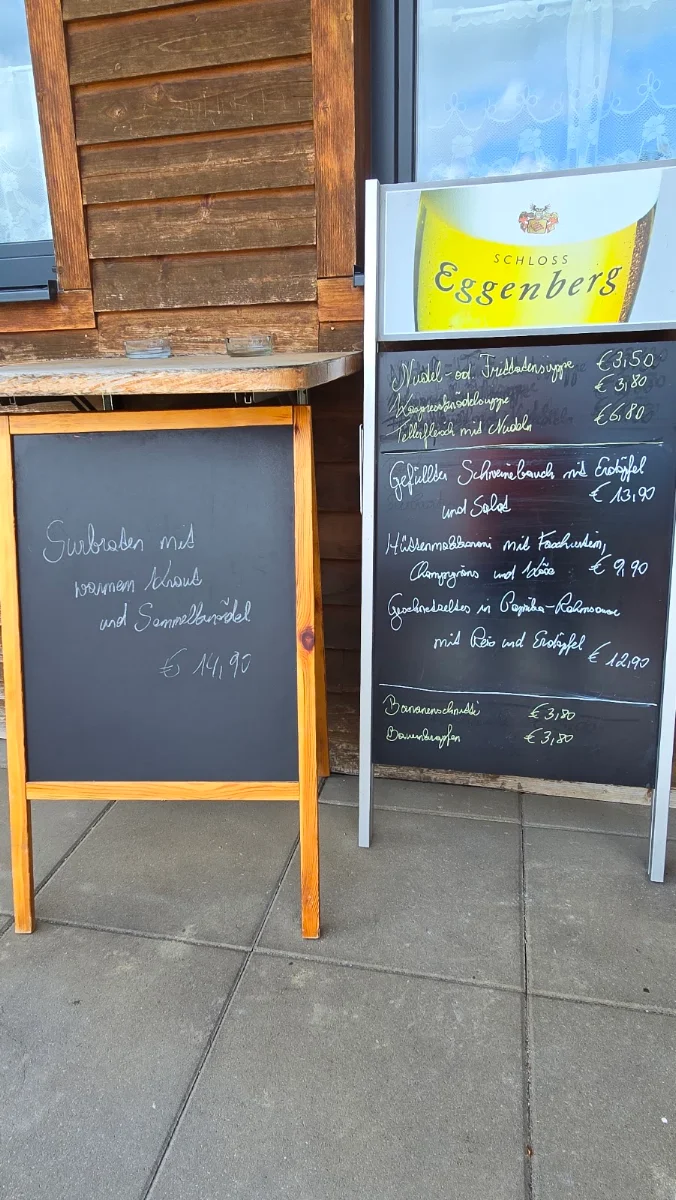 Surbraten mit
warmem Kraut
und Semmelknödel
€ 14,90
SCHLOSS
Eggenberg
Nudel- od. Frittatensuppe €3,50
Kaspressknödelsuppe € 3,80
Tellerfleisch mit Nudeln €6,80
Gefüllter Schweinebauch mit Erdäpfel
und Salat € 13,90
Hüttenmakkaroni mit Faschiertem,
Champignons und Käse € 9,90
Geschnetzeltes in Paprika-Rahmsauce
mit Reis und Erdäpfel € 12,90
Bananenschnitte €3,80
Bauernkrapfen €3,80